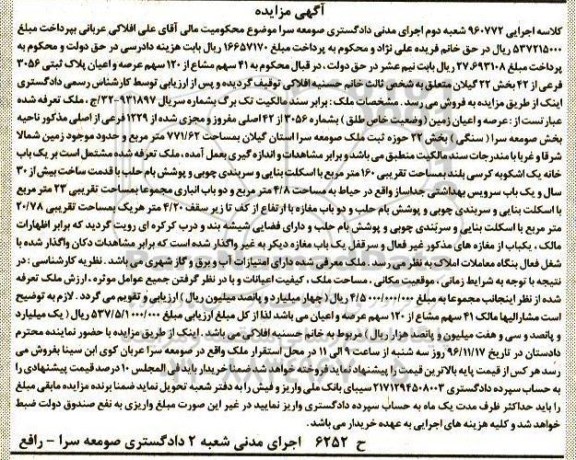 آگهی مزایده
کلاسه اجرایی ۹۶۰۷۷۲ شعبه دوم اجرای مدنی دادگستری صومعه سرا موضوع محکومیت مالی آقای علی افلاکی عربانی بپرداخت مبلغ
۵۳۷۲۱۵۰۰۰ ریال در حق خانم فریده علی نژاد و محکوم به پرداخت مبلغ ۱۶۶۵۷۱۷۰ ریال بابت هزینه دادرسی در حق دولت و محکوم به
پرداخت مبلغ ۲۷،۶۹۳۱۰۸ ریال بابت نیم عشر در حق دولت ، در قبال محکوم به ۴۱ سهم مشاع از ۱۲۰ سهم عرصه و اعیان پلاک ثبتی ۳۰۵۶
فرعی از ۴۲ بخش ۲۲ گیلان متعلق به شخص ثالث خانم حسنیه افلاکی توقیف گردیده و پس از ارزیابی توسط کارشناس رسمی دادگستری
اینک از طریق مزایده به فروش می رسد . مشخصات ملک : برابر سند مالکیت تک برگ بشماره سریال ۱۳۱۸۹۷-۳۲/ج ، ملک تعرفه شده
عبارتست از : عرصه و اعیان زمین (وضعیت خاص طلق ) بشماره ۳۰۵۶ از ۴۲ اصلی مفروز و مجزی شده از ۱۲۲۹ فرعی از اصلی مذکور ناحیه
بخش صومعه سرا ( سنگی ) بخش ۲۲ حوزه ثبت ملک صومعه سرا استان گیلان بمساحت ۷۷۱/۶۲ متر مربع و حدود موجود زمین شمالا
شرقا و غربا با مندرجات سند مالکیت منطبق می باشد و برابر مشاهدات و اندازه گیری بعمل آمده ، ملک تعرفه شده مشتمل است بر یک باب
خانه یک اشکوبه کرسی بلند بمساحت تقریبی ۱۶۰ متر مربع با اسکلت بنایی و سربندی چوبی و پوشش بام حلب با قدمت ساخت بیش از ۳۰
سال و یک باب سرویس بهداشتی جداساز واقع در حیاط به مساحت ۴/۸ متر مربع و دو باب انباری مجموعا بمساحت تقریبی ۲۳ متر مربع
با اسکلت بنایی و سربندی چوبی و پوشش بام حلب و دو باب مغازه با ارتفاع از کف تا زیر سقف ۴/۲۰ متر هریک بمساحت تقریبی ۲۰/۷۸
متر مربع با اسکلت بنایی و سربندی چوبی و پوشش بام حلب و دارای فضایی شیشه بند و درب کرکره ای رویت گردید که برابر اظهارات
مالک ، یکباب از مغازه های مذکور غیر فعال و سرقفل یک باب مغازه دیگر به غیر واگذار شده است که برابر مشاهدات دکان واگذار شده با
شغل فعال بنگاه معاملات املاک به نظر می رسد . ملک معرفی شده دارای امتیازات آب و برق و گاز شهری می باشد . نظریه کارشناسی : در
نتیجه با توجه به شرایط زمانی ، موقعیت مکانی ، مساحت ملک ، کیفیت اعیانات و با در نظر گرفتن جمیع عوامل موثره ، ارزش ملک تعرفه
شده از نظر اینجانب مجموعا به مبلغ ۴/۵۰۰/۰۰۰/۰۰۰ ریال (چهار میلیارد و پانصد میلیون ریال ) ارزیابی و تقویم می گردد . لازم به توضیح
است مشارالیها مالک ۴۱ سهم مشاع از ۱۲۰ سهم عرصه و اعیان می باشد لذا از کل مبلغ ارزیابی مبلغ ۱/۵۳۷/۵۰۰/۰۰۰ ریال ( یک میلیارد
و پانصد و سی و هفت میلیون و پانصد هزار ریال ) مربوط به خانم حسنیه افلاکی می باشد . اینک از طریق مزایده با حضور نماینده محترم
دادستان در تاریخ ۹۶/۱۱/۱۷ روز سه شنبه از ساعت ۹ الی ۱۱ در محل استقرار ملک واقع در صومعه سرا عربان کوی ابن سینا بفروش می
رسد هر کس از قیمت پایه بالاترین قیمت را پیشنهاد نماید فروخته خواهد شد ضمنا خریدار باید فی المجلس ۱۰ درصد قیمت پیشنهادی را
به حساب سپرده دادگستری ۲۱۷۱۲۹۴۵۰۸۰۰۳ سیبای بانک ملی واریز و فیش را به دفتر شعبه تحویل نماید ضمنا برنده مزایده مابقی مبلغ
را باید حداکثر ظرف مدت یک ماه به حساب سپرده دادگستری واریز نمایید در غیر این صورت مبلغ واریزی به نفع صندوق دولت ضبط
خواهد شد و کلیه هزینه های اجرایی به عهده خریدار می باشد .
ح ۶۲۵۲ اجرای مدنی شعبه ۲ دادگستری صومعه سرا - رافع